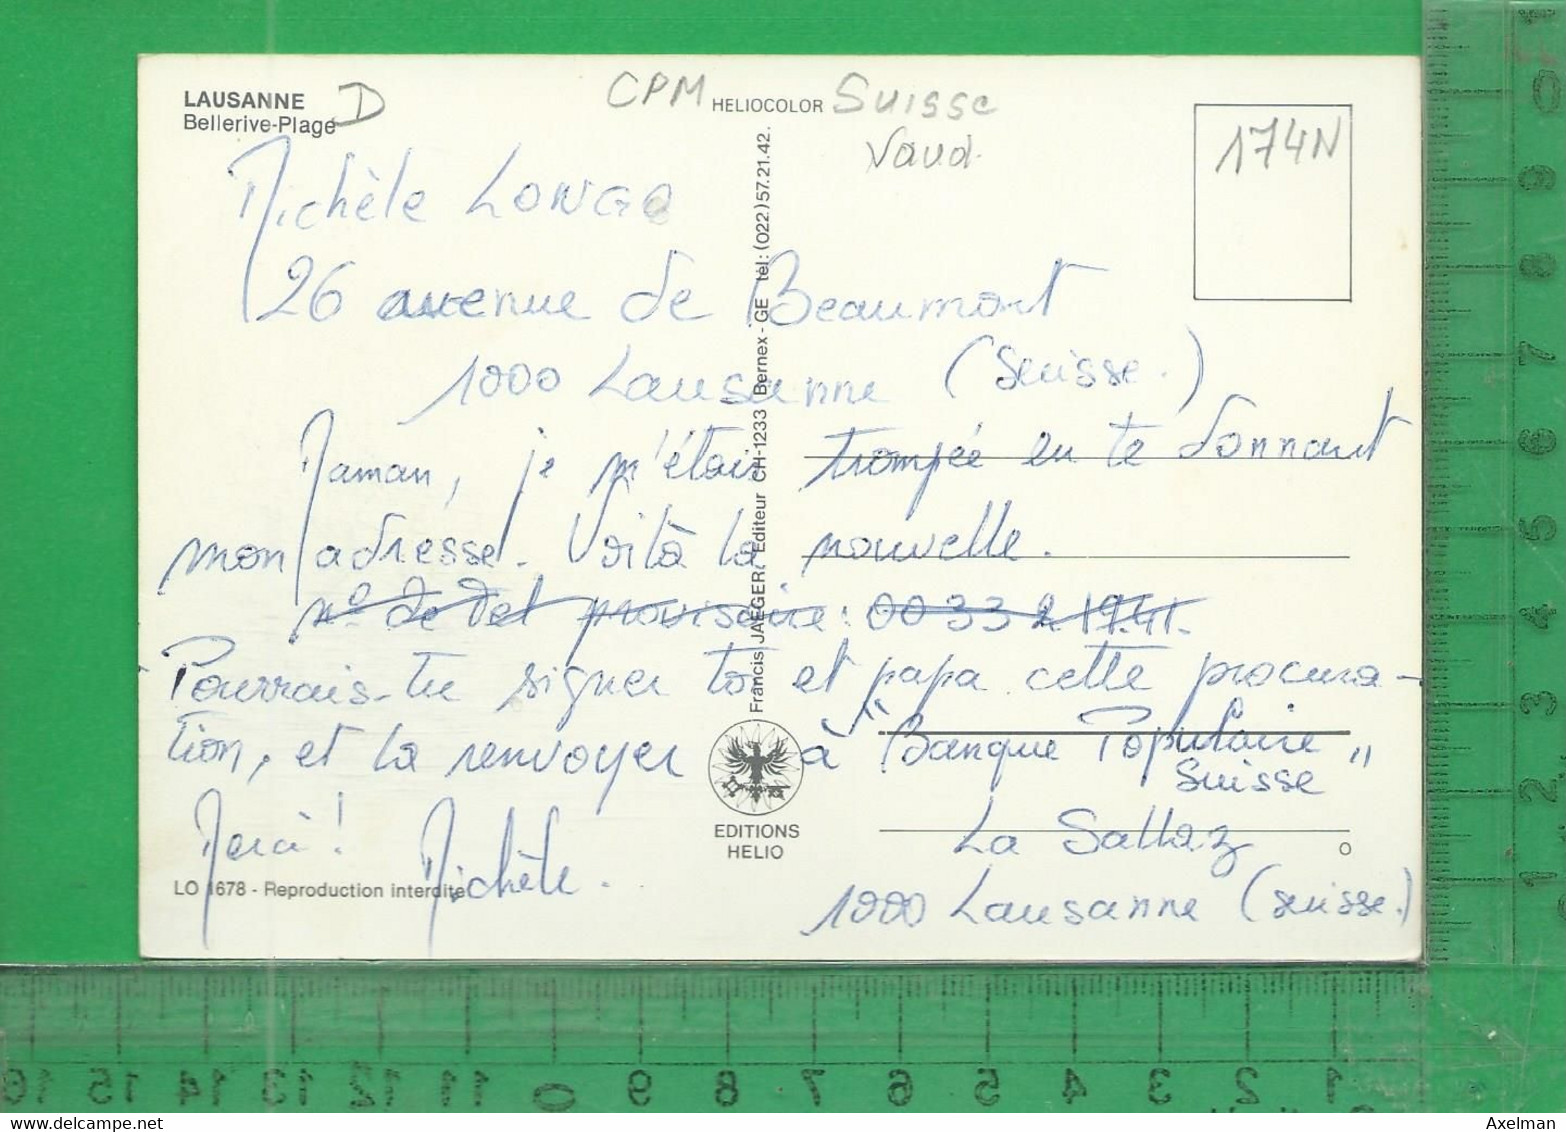 LAUSANNE
Bellerive-Plage
D
CPM
HELIOCOLOR
Suisse
Vaud.
174N
Michèle LONGO
26 avenue de Beaumont
1000 Lausanne (Suisse.)
Maman, je m'étais trompée en te donnant
mon adresse. Voilà la nouvelle.
n° de tel provisoire : 00 33 2
Pourrais-tu signer toi et papa cette procura-
tion, et la renvoyer à "Banque Populaire
Suisse"
Merci! Michèle.
La Sallaz
1000 Lausanne (suisse.)
Francis JAEGER, Editeur CH-1233 Bernex - GE tél: (022) 57.21.42.
EDITIONS
HELIO
LO 1678 - Reproduction interdite
0 1 2 3 4 5 6 7 8 9 0
16 15 14 13 12 11 0 9 8 7 6 5 4 3 2 1
Axelman